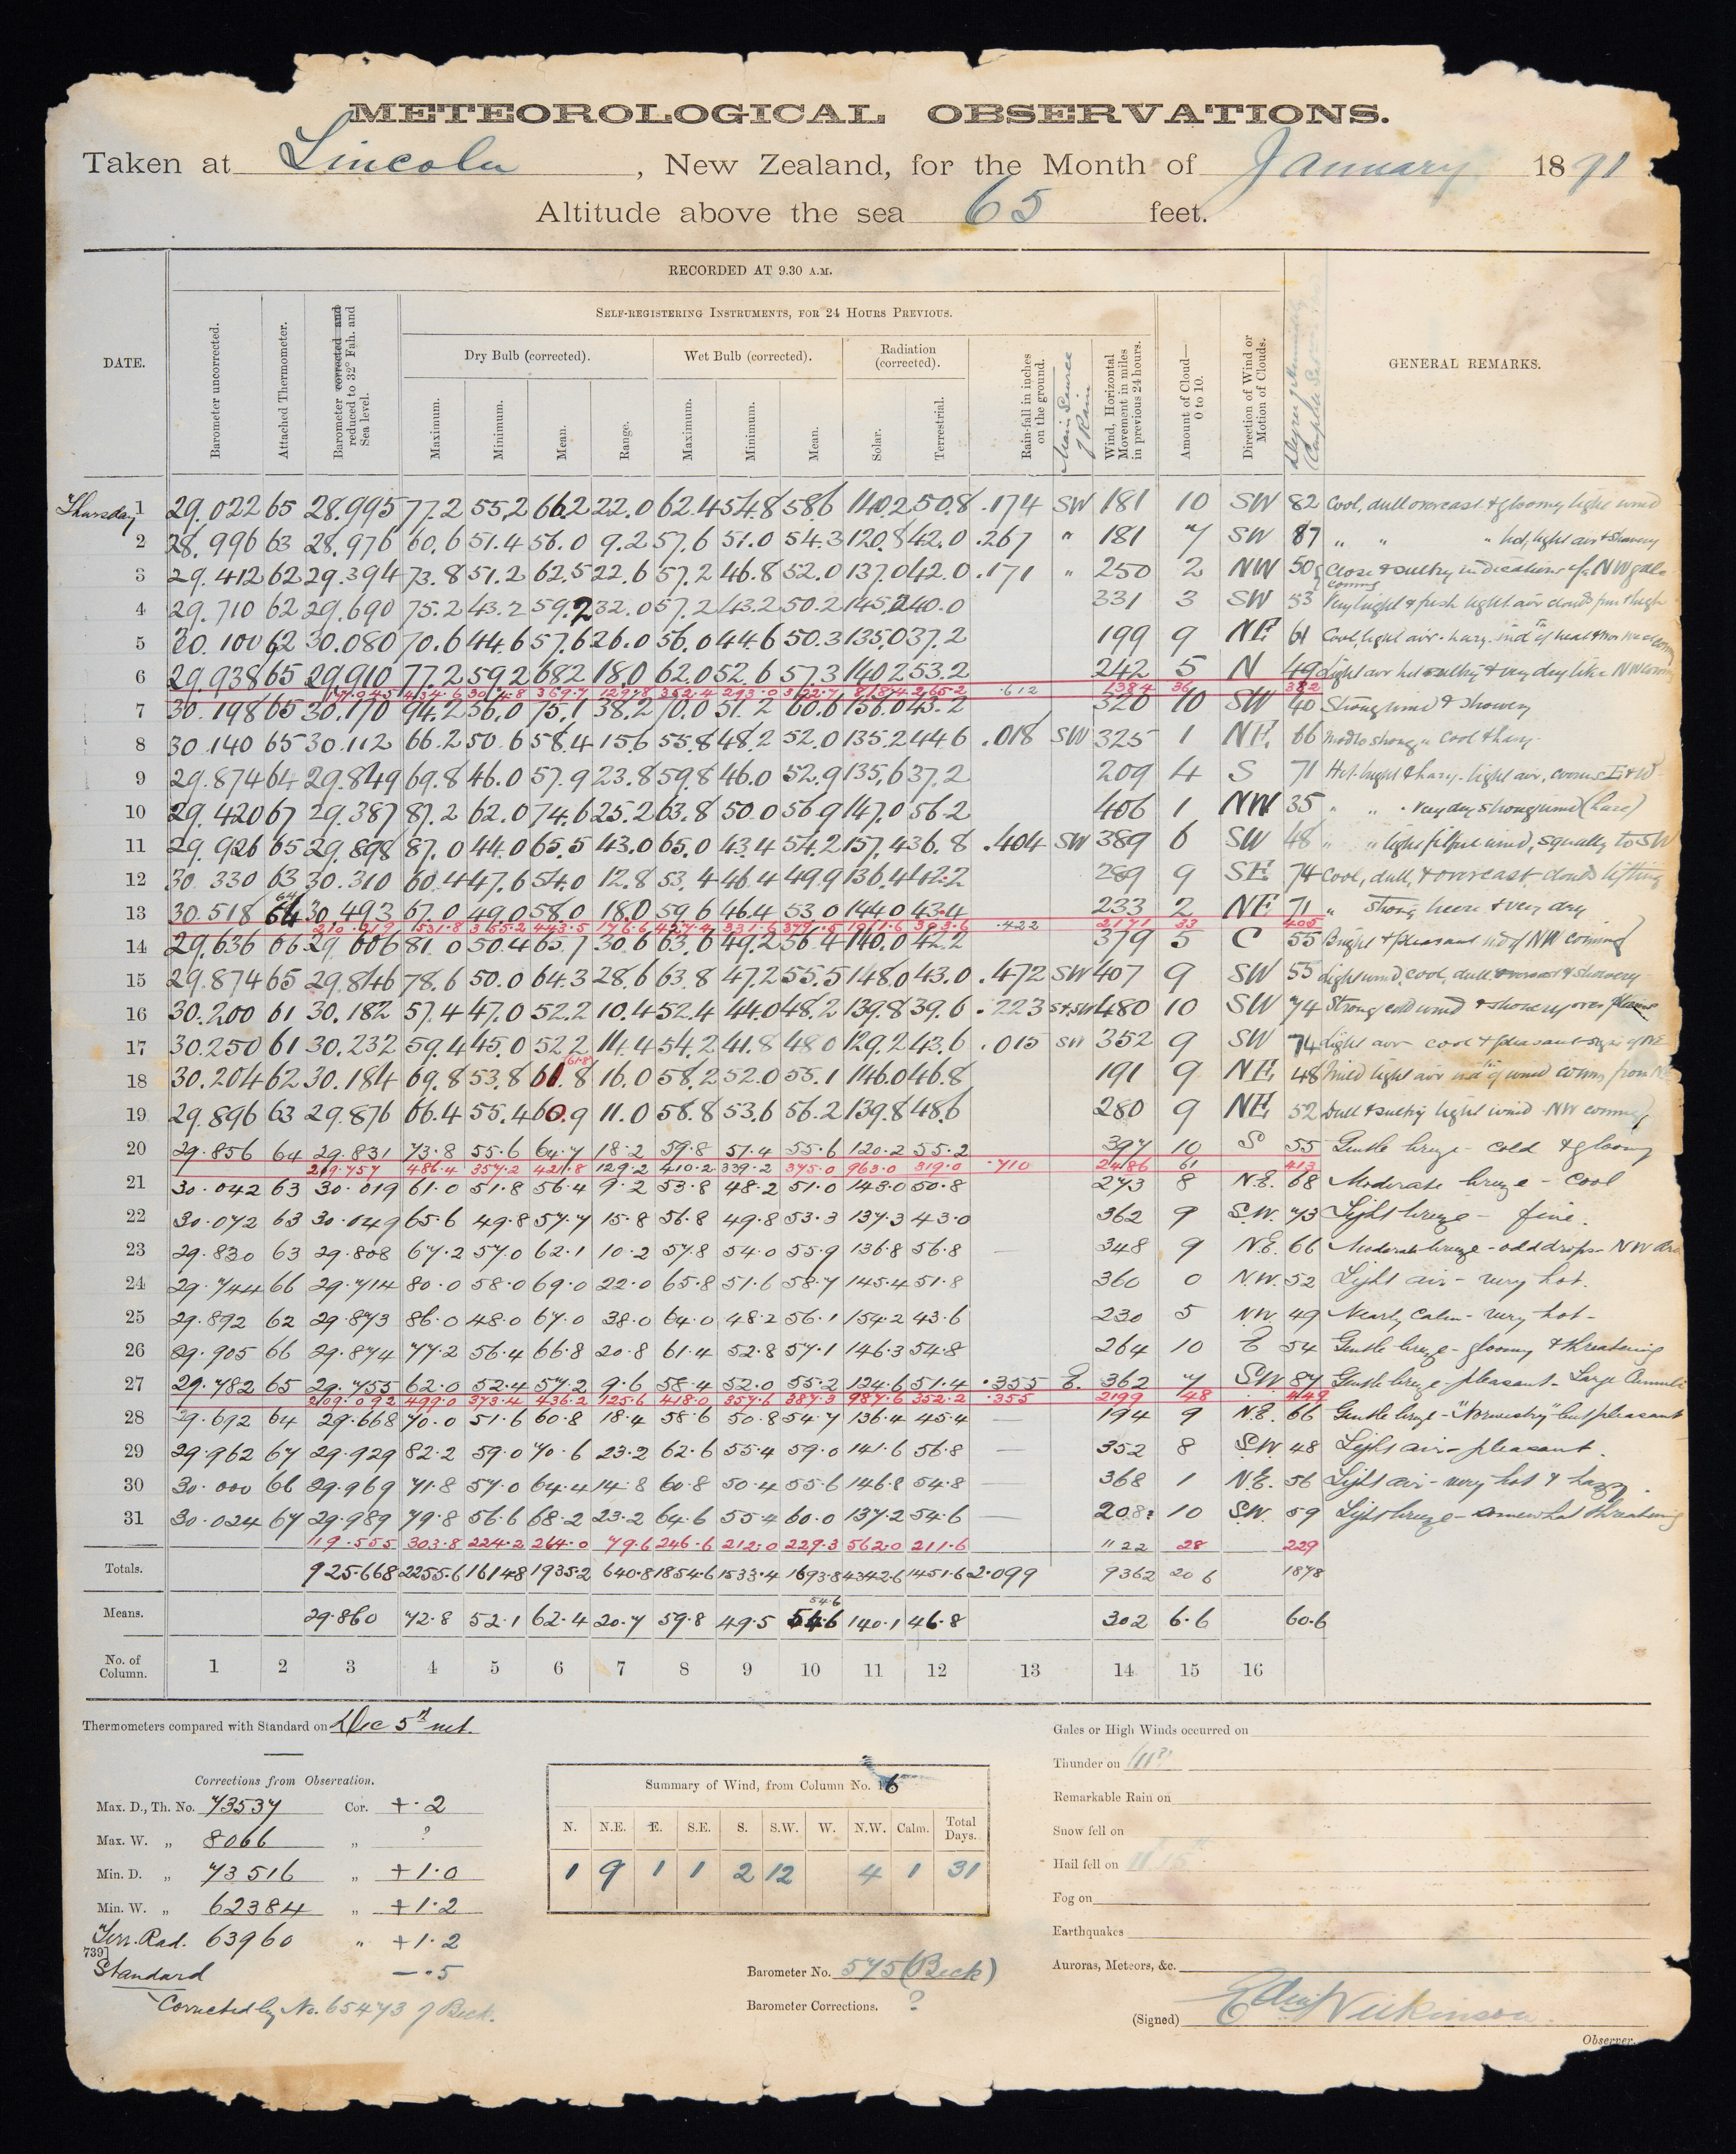 METEOROLOGICAL OBSERVATIONS.
Taken at Lincoln, New Zealand, for the Month of January 1891
Altitude above the sea 65 feet.
RECORDED AT 9.30 A.M.
SELF-REGISTERING INSTRUMENTS, FOR 24 HOURS PREVIOUS.
DATE. Barometer uncorrected. Attached Thermometer. Barometer corrected and reduced to 32° Fah. and Sea level. Dry Bulb (corrected). Wet Bulb (corrected). Radiation (corrected). Rain-fall in inches on the ground. Main Source of Rain Wind, Horizontal Movement in miles in previous 24 hours. Amount of Cloud— 0 to 10. Direction of Wind or Motion of Clouds. GENERAL REMARKS.
Maximum. Minimum. Mean. Range. Maximum. Minimum. Mean. Solar. Terrestrial.
Thursday 1 29.022 65 28.995 77.2 55.2 66.2 22.0 62.4 54.8 58.6 140.2 50.8 .174 SW 181 10 SW 82 Cool, dull overcast & gloomy light wind
2 28.996 63 28.976 60.6 51.4 56.0 9.2 57.6 51.0 54.3 120.8 42.0 .267 " 181 7 SW 87 " " " light air & showery
3 29.412 62 29.394 73.8 51.2 62.5 22.6 57.2 46.8 52.0 137.0 42.0 .171 " 250 2 NW 50 Close & sultry indications of NW gale coming
4 29.710 62 29.690 75.2 43.2 59.2 32.0 57.2 43.2 50.2 145.2 40.0 331 3 SW 53 Very bright & fresh light air clouds
5 30.100 62 30.080 70.6 44.6 57.6 26.0 56.0 44.6 50.3 135.0 37.2 199 9 NE 61 Cool, light air - hazy. ind of heat
6 29.938 65 29.910 77.2 59.2 68.2 18.0 62.0 52.6 57.3 140.2 53.2 242 5 N 49 Light air hot sultry & very dry like NW coming
177.045 434.6 304.8 369.7 129.8 352.4 293.0 322.7 818.4 265.2 .612 1384 36 382
7 30.198 65 30.170 94.2 56.0 75.1 38.2 70.0 51.2 60.6 156.0 43.2 320 10 SW 40 Strong wind & showery
8 30.140 65 30.112 66.2 50.6 58.4 15.6 55.8 48.2 52.0 135.2 44.6 .018 SW 325 1 NE 66 Mod to strong " cool & hazy
9 29.874 64 29.849 69.8 46.0 57.9 23.8 59.8 46.0 52.9 135.6 37.2 209 4 S 71 Hot bright & hazy - light air,
10 29.420 67 29.387 87.2 62.0 74.6 25.2 63.8 50.0 56.9 147.0 56.2 406 1 NW 35 " " " very dry strong wind (haze)
11 29.926 65 29.898 87.0 44.0 65.5 43.0 65.0 43.4 54.2 157.4 36.8 .404 SW 389 6 SW 48 " " light fitful wind, squally to SW
12 30.330 63 30.310 60.4 47.6 54.0 12.8 53.4 46.4 49.9 136.4 42.2 289 9 SE 74 Cool, dull, & overcast clouds lifting
13 30.518 64 30.493 67.0 49.0 58.0 18.0 59.6 46.4 53.0 144.0 43.4 233 2 NE 71 " Strong breeze & very dry
210.219 531.8 355.2 443.5 176.6 427.4 331.6 379.5 1011.6 303.6 .422 2171 33 405
14 29.636 66 29.606 81.0 50.4 65.7 30.6 63.6 49.2 56.4 140.0 42.2 379 5 C 55 Bright & pleasant ind of NW coming
15 29.874 65 29.846 78.6 50.0 64.3 28.6 63.8 47.2 55.5 148.0 43.0 .472 SW 407 9 SW 55 Light wind, cool, dull overcast & showery
16 30.200 61 30.182 57.4 47.0 52.2 10.4 52.4 44.0 48.2 139.8 39.6 .223 S & SW 480 10 SW 74 Strong cold wind & showery over plains
17 30.250 61 30.232 59.4 45.0 52.2 14.4 54.2 41.8 48.0 129.2 43.6 .015 SW 352 9 SW 74 Light air cool & pleasant signs of NE
18 30.204 62 30.184 69.8 53.8 61.8 16.0 58.2 52.0 55.1 146.0 46.8 191 9 NE 48 Mild light air ind of wind coming from N
19 29.896 63 29.876 66.4 55.4 60.9 11.0 58.8 53.6 56.2 139.8 48.6 280 9 NE 52 Dull & sultry light wind - NW coming
20 29.856 64 29.831 73.8 55.6 64.7 18.2 59.8 51.4 55.6 120.2 55.2 397 10 S 55 Gentle breeze - cold & gloomy
219.757 486.4 357.2 421.8 129.2 410.2 339.2 375.0 963.0 319.0 .710 2486 61 413
21 30.042 63 30.019 61.0 51.8 56.4 9.2 53.8 48.2 51.0 143.0 50.8 273 8 N.E. 68 Moderate breeze - cool
22 30.072 63 30.049 65.6 49.8 57.7 15.8 56.8 49.8 53.3 137.3 43.0 362 9 S.W. 73 Light breeze - fine.
23 29.830 63 29.808 67.2 57.0 62.1 10.2 57.8 54.0 55.9 136.8 56.8 — 348 9 N.E. 66 Moderate breeze - odd drops - NW
24 29.744 66 29.714 80.0 58.0 69.0 22.0 65.8 51.6 58.7 145.4 51.8 360 0 NW. 52 Light air - very hot.
25 29.892 62 29.873 86.0 48.0 67.0 38.0 64.0 48.2 56.1 154.2 43.6 230 5 NW. 49 Nearly Calm - very hot -
26 29.905 66 29.874 77.2 56.4 66.8 20.8 61.4 52.8 57.1 146.3 54.8 264 10 E 54 Gentle breeze - gloomy & threatening
27 29.782 65 29.755 62.0 52.4 57.2 9.6 58.4 52.0 55.2 124.6 51.4 .355 E. 362 7 S.W 87 Gentle breeze - pleasant - Large Cumuli
209.092 499.0 373.4 436.2 125.6 418.0 357.6 387.3 987.6 352.2 .355 2199 48 449
28 29.692 64 29.668 70.0 51.6 60.8 18.4 58.6 50.8 54.7 136.4 45.4 — 194 9 N.E. 66 Gentle breeze - "Norwestry" but pleasant
29 29.962 67 29.929 82.2 59.0 70.6 23.2 62.6 55.4 59.0 141.6 56.8 — 352 8 S.W. 48 Light air - pleasant.
30 30.000 66 29.969 71.8 57.0 64.4 14.8 60.8 50.4 55.6 146.8 54.8 368 1 N.E. 56 Light air - very hot & hazy.
31 30.024 67 29.989 79.8 56.6 68.2 23.2 64.6 55.4 60.0 137.2 54.6 — 208 10 S.W. 59 Light breeze - somewhat threatening
119.555 303.8 224.2 264.0 79.6 246.6 212.0 229.3 562.0 211.6 1122 28 229
Totals. 925.668 2255.6 1614.8 1935.2 640.8 1854.6 1533.4 1693.8 4342.6 1451.6 2.099 9362 206 1878
54.6
Means. 29.860 72.8 52.1 62.4 20.7 59.8 49.5 54.6 140.1 46.8 302 6.6 60.6
No. of Column. 1 2 3 4 5 6 7 8 9 10 11 12 13 14 15 16
Thermometers compared with Standard on Dec 5th
Corrections from Observation.
Max. D., Th. No. 73537 Cor. + .2
Max. W. „ 8066 „ ?
Min. D. „ 73516 „ + 1.0
Min. W. „ 62384 „ + 1.2
Terr. Rad. 63960 " + 1.2
739]
Standard — .5
Corrected by No. 65473 of Beck.
Summary of Wind, from Column No. 16
N. N.E. E. S.E. S. S.W. W. N.W. Calm. Total Days.
1 9 1 1 2 12 4 1 31
Barometer No. 575 (Beck)
Barometer Corrections. ?
Gales or High Winds occurred on
Thunder on
Remarkable Rain on
Snow fell on
Hail fell on 11 15th
Fog on
Earthquakes
Auroras, Meteors, &c.
(Signed) Edwin Wilkinson
Observer.